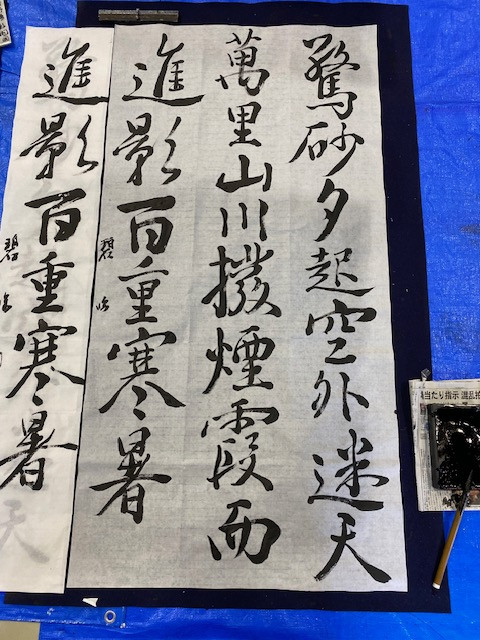 驚砂夕起空外迷天
萬里山川撥煙霞而
進影百重寒暑
碧臨
進影百重寒暑
碧臨
当たり指示 混乱拍